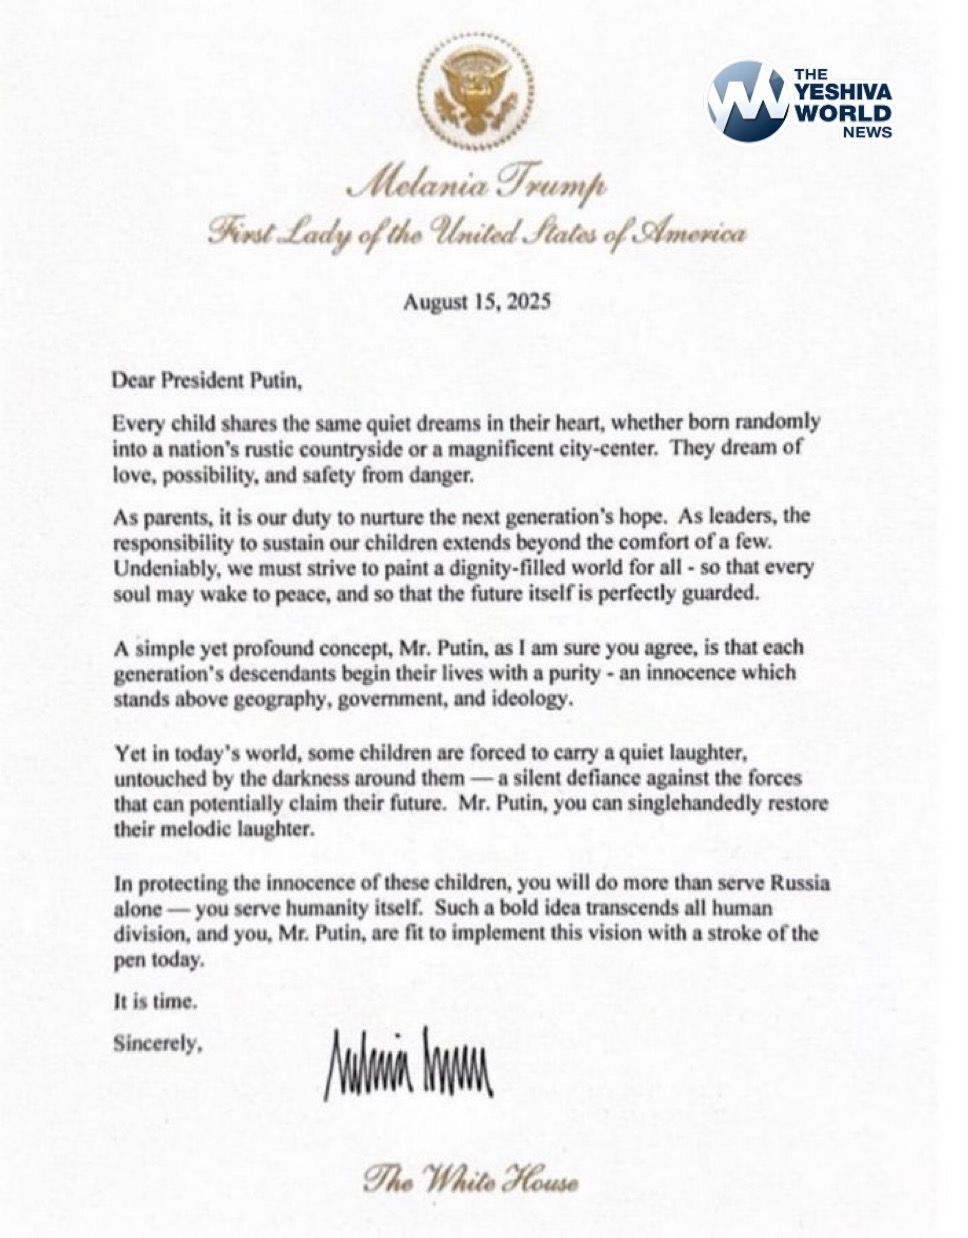 THE
YESHIVA
WORLD
NEWS
Melania Trump
First Lady of the United States of America
August 15, 2025
Dear President Putin,
Every child shares the same quiet dreams in their heart, whether born randomly
into a nation's rustic countryside or a magnificent city-center. They dream of
love, possibility, and safety from danger.
As parents, it is our duty to nurture the next generation's hope. As leaders, the
responsibility to sustain our children extends beyond the comfort of a few.
Undeniably, we must strive to paint a dignity-filled world for all - so that every
soul may wake to peace, and so that the future itself is perfectly guarded.
A simple yet profound concept, Mr. Putin, as I am sure you agree, is that each
generation's descendants begin their lives with a purity - an innocence which
stands above geography, government, and ideology.
Yet in today's world, some children are forced to carry a quiet laughter,
untouched by the darkness around them — a silent defiance against the forces
that can potentially claim their future. Mr. Putin, you can singlehandedly restore
their melodic laughter.
In protecting the innocence of these children, you will do more than serve Russia
alone — you serve humanity itself. Such a bold idea transcends all human
division, and you, Mr. Putin, are fit to implement this vision with a stroke of the
pen today.
It is time.
Sincerely,
The White House